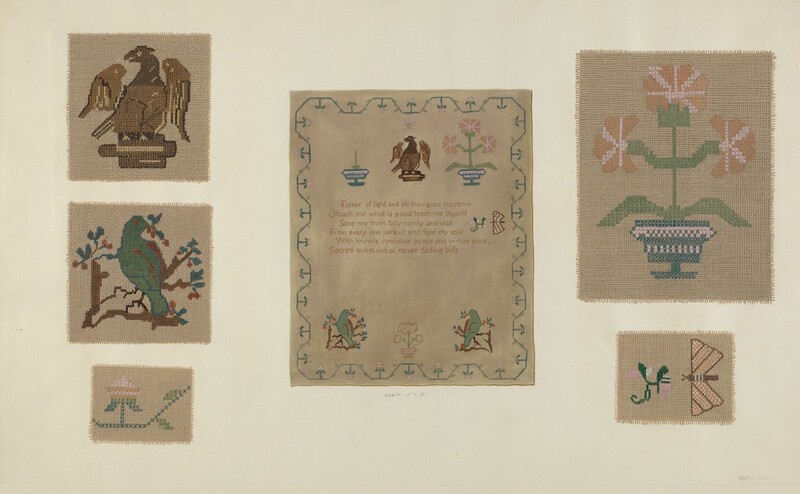 Father of light and life thou good supreme
O teach me what is good teach me thyself
Save me from folly vanity and vice
From every low pursuit and feed my soul
With knowle concious peace and virtue pure
Sacred substantial never fading bliss